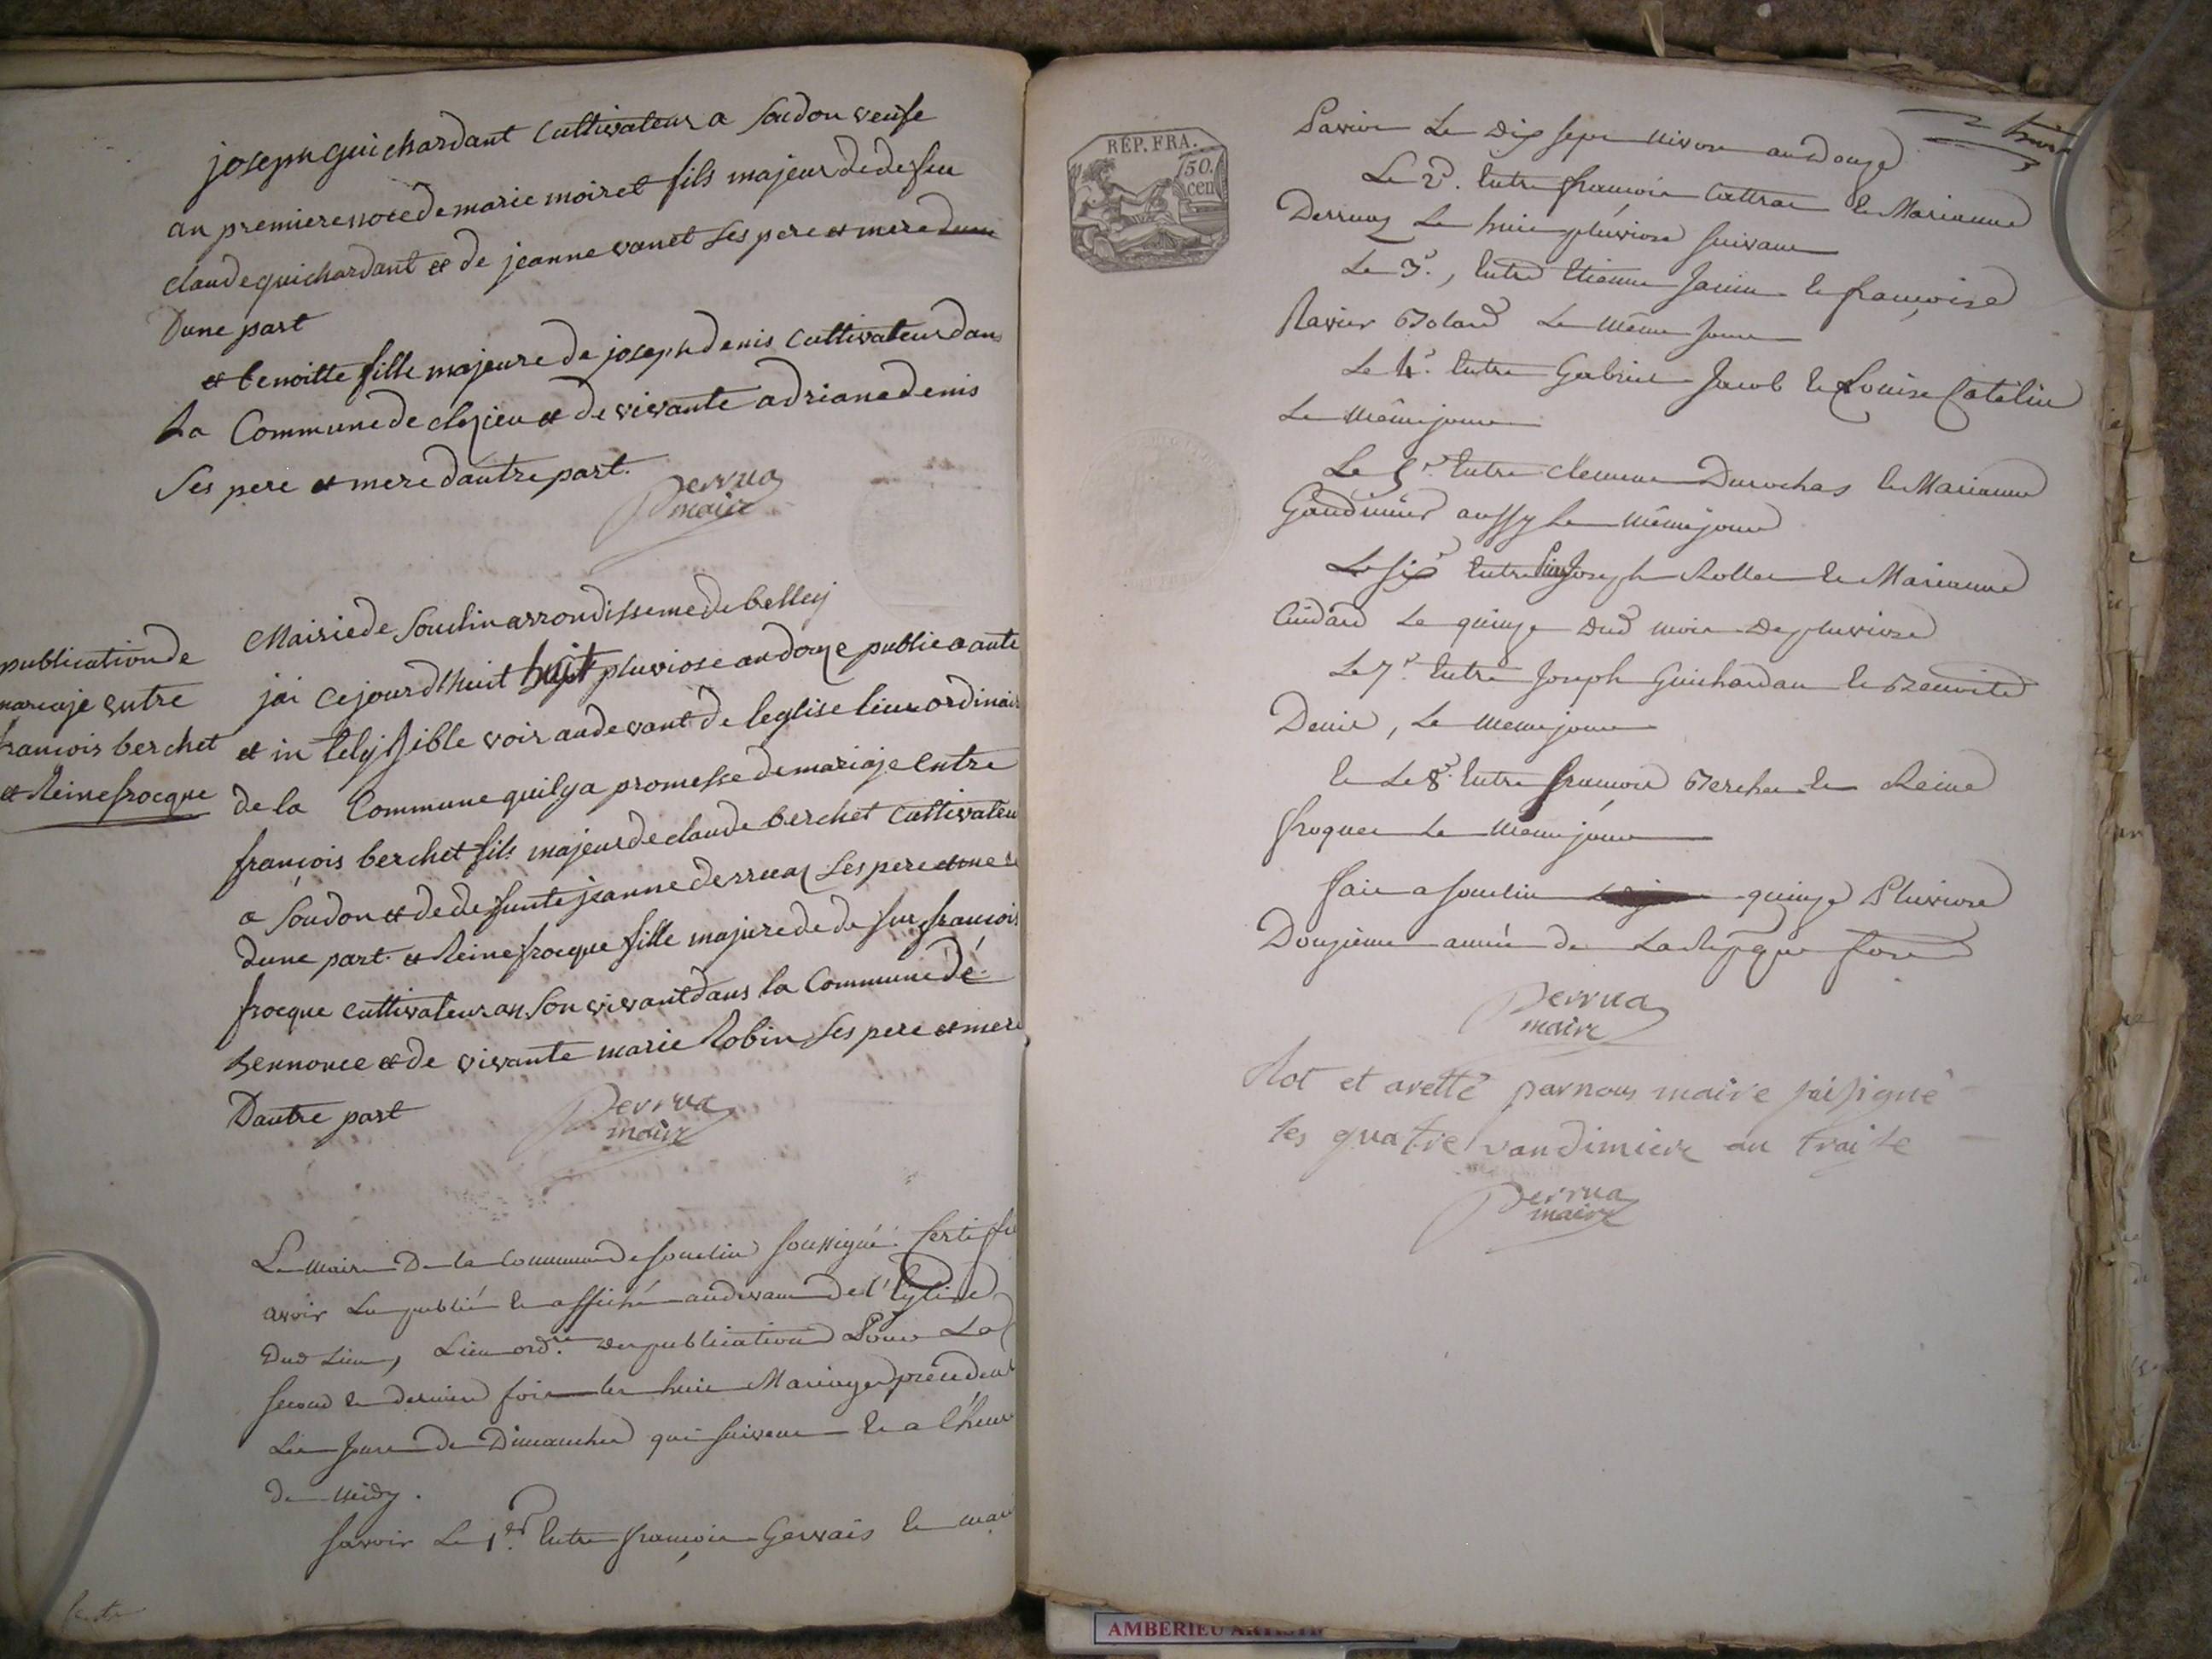 joseph guichardant cultivateur a soudon veufe
an premiere noce de marie moiret fils majeur de defeu
claude guichardant et de jeanne vanet ses pere et mere
Dune part
et benoitte fille majeure de joseph denis cultivateur dans
La Commune de clezieu et de vivante adriane denis
Ses pere et mere dautre part.
Derrua
maire
Mairie de Souclin arrondisseme de belley
publication de
mariaje entre
francois berchet
et Reine frocque
jai cejourdhuit huit pluviose an douze publie a aute
et in telijsible voix au devant de leglise lieu ordinair
de la Commune quil y a promesse de mariaje Entre
françois berchet fils majeur de claude berchet cultivateu
a Soudon et de defunte jeanne derruaz Ses pere et mere
dune part. et Reine frocque fille majure de defur francois
frocque cultivateur an Son vivant dans la Commune dé
bennonce et de vivante marie Robin Ses pere et mere
Dautre part
Derrua
maire
Le maire De la Commune de Souclin Soussigné. Certifie
avoir Lu publié et affiché au devant De l'Eglise
Dud Lieu, Lieu ordre. de publication Pour La
Second et derniere fois les huit Mariages précédent
Les Jours de Dimanches qui suivent et a l'heure
de Midy.
Savoir Le 1er. Entre françois Gervais et mari
RÉP. FRA.
50.
cen
Le Dix Sept Nivose an Douze
Le 2e. Entre françois Cattrat et Marianne
Derruaz Le huit pluviose Suivant
Le 3e., Entre Etienne Janin et françoise
Ravier Bolard Le Même Jour
Le 4e. Entre Gabriel Jacob et Louise Catelin
Le Même jour
Le 5e. Entre Clement Durochas et Marianne
aussy Le Même jour
Le Six Entre Joseph Rollet et Marianne
Cuidard Le quinze Dud mois De pluviose
Le 7e. Entre Joseph Guichardan et Benoite
Denis, Le Meme jour
et Le 8e. Entre francois Berchet et Reine
froque Le Meme jour
fait a Souclin quinze Pluviose
Douzieme année de La Repque
Derrua
maire
Clot et aretté par nous maire
les quatre vandimiere an traise
Derrua
maire
AMBERIEU